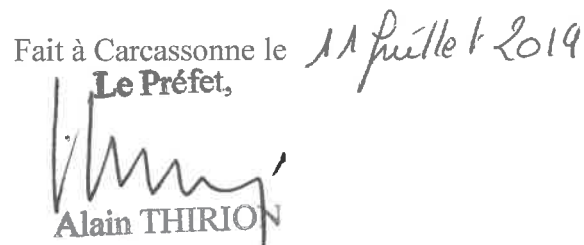 Fait à Carcassonne le 11 juillet 2019
Le Préfet,
Alain THIRION